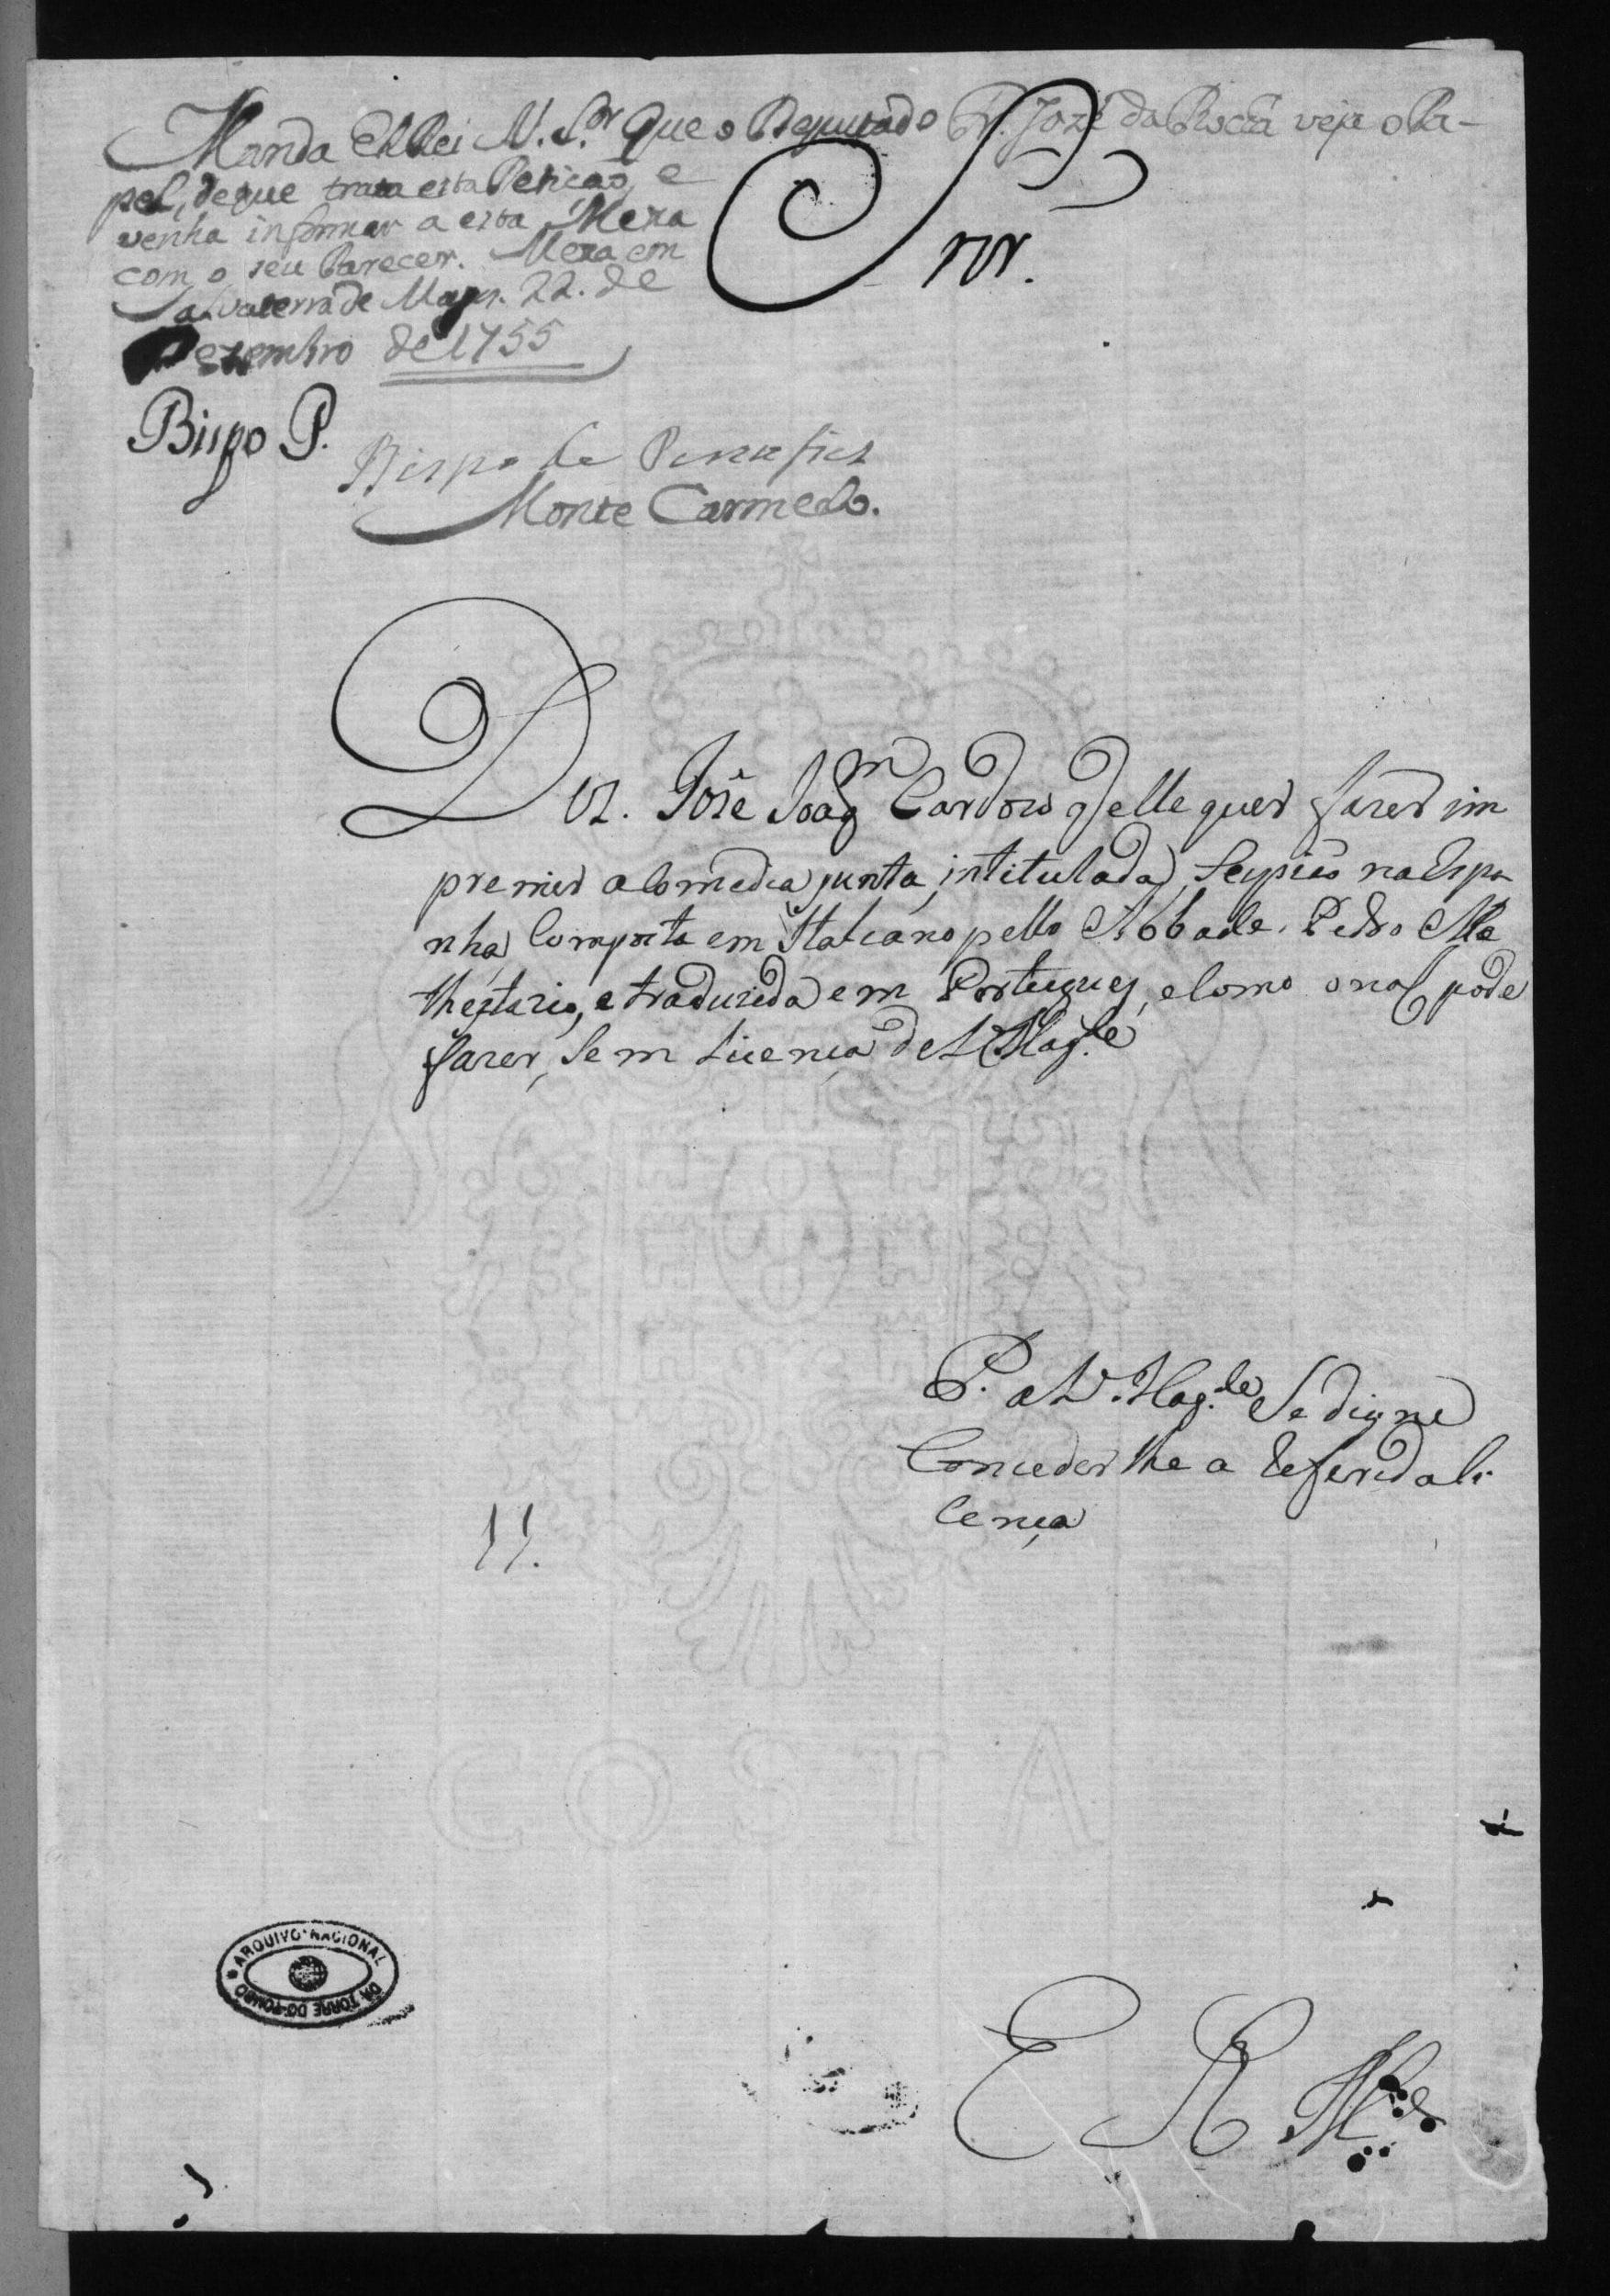 Manda ElRei N. S.or Que o Deputado Fr. Jozé da Rocha veja o Pa-
pel, de que trata esta Petição, e
venha informar a esta Meza
com o seu Parecer. Meza em
Salvaterra de Mag.s 22. de
Dezembro de 1755
Snor.
Bispo P.
Bispo de Penafiel
Monte Carmelo.
Diz. José Joaq.m Cardozo q elle quer fazer im
premir a Comedia junta, intitulada, Scipião na Espa
nha Composta em Italiano pello Abbade. Pedro Me
thestazio, e traduzida em Portuguez, e Como o não pode
fazer, Sem Licença de V Mag.de
P. a V. Mag.de Se digne
Conceder lhe a Referida Li
cença
11.
COSTA
ARQUIVO NACIONAL
DA TORRE DO TOMBO
E R M.ce